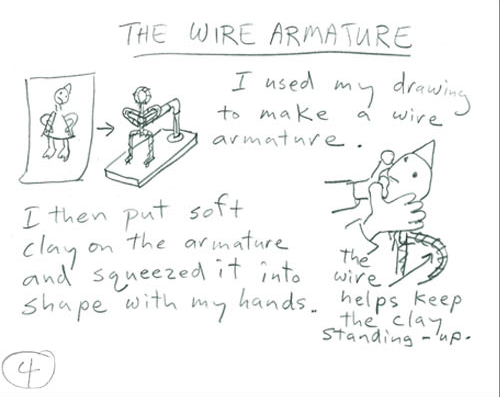 THE WIRE ARMATURE
I used my drawing
to make a wire
armature.
I then put soft
clay on the armature
and squeezed it into
shape with my hands.
the
wire
helps keep
the clay
standing-up.
4